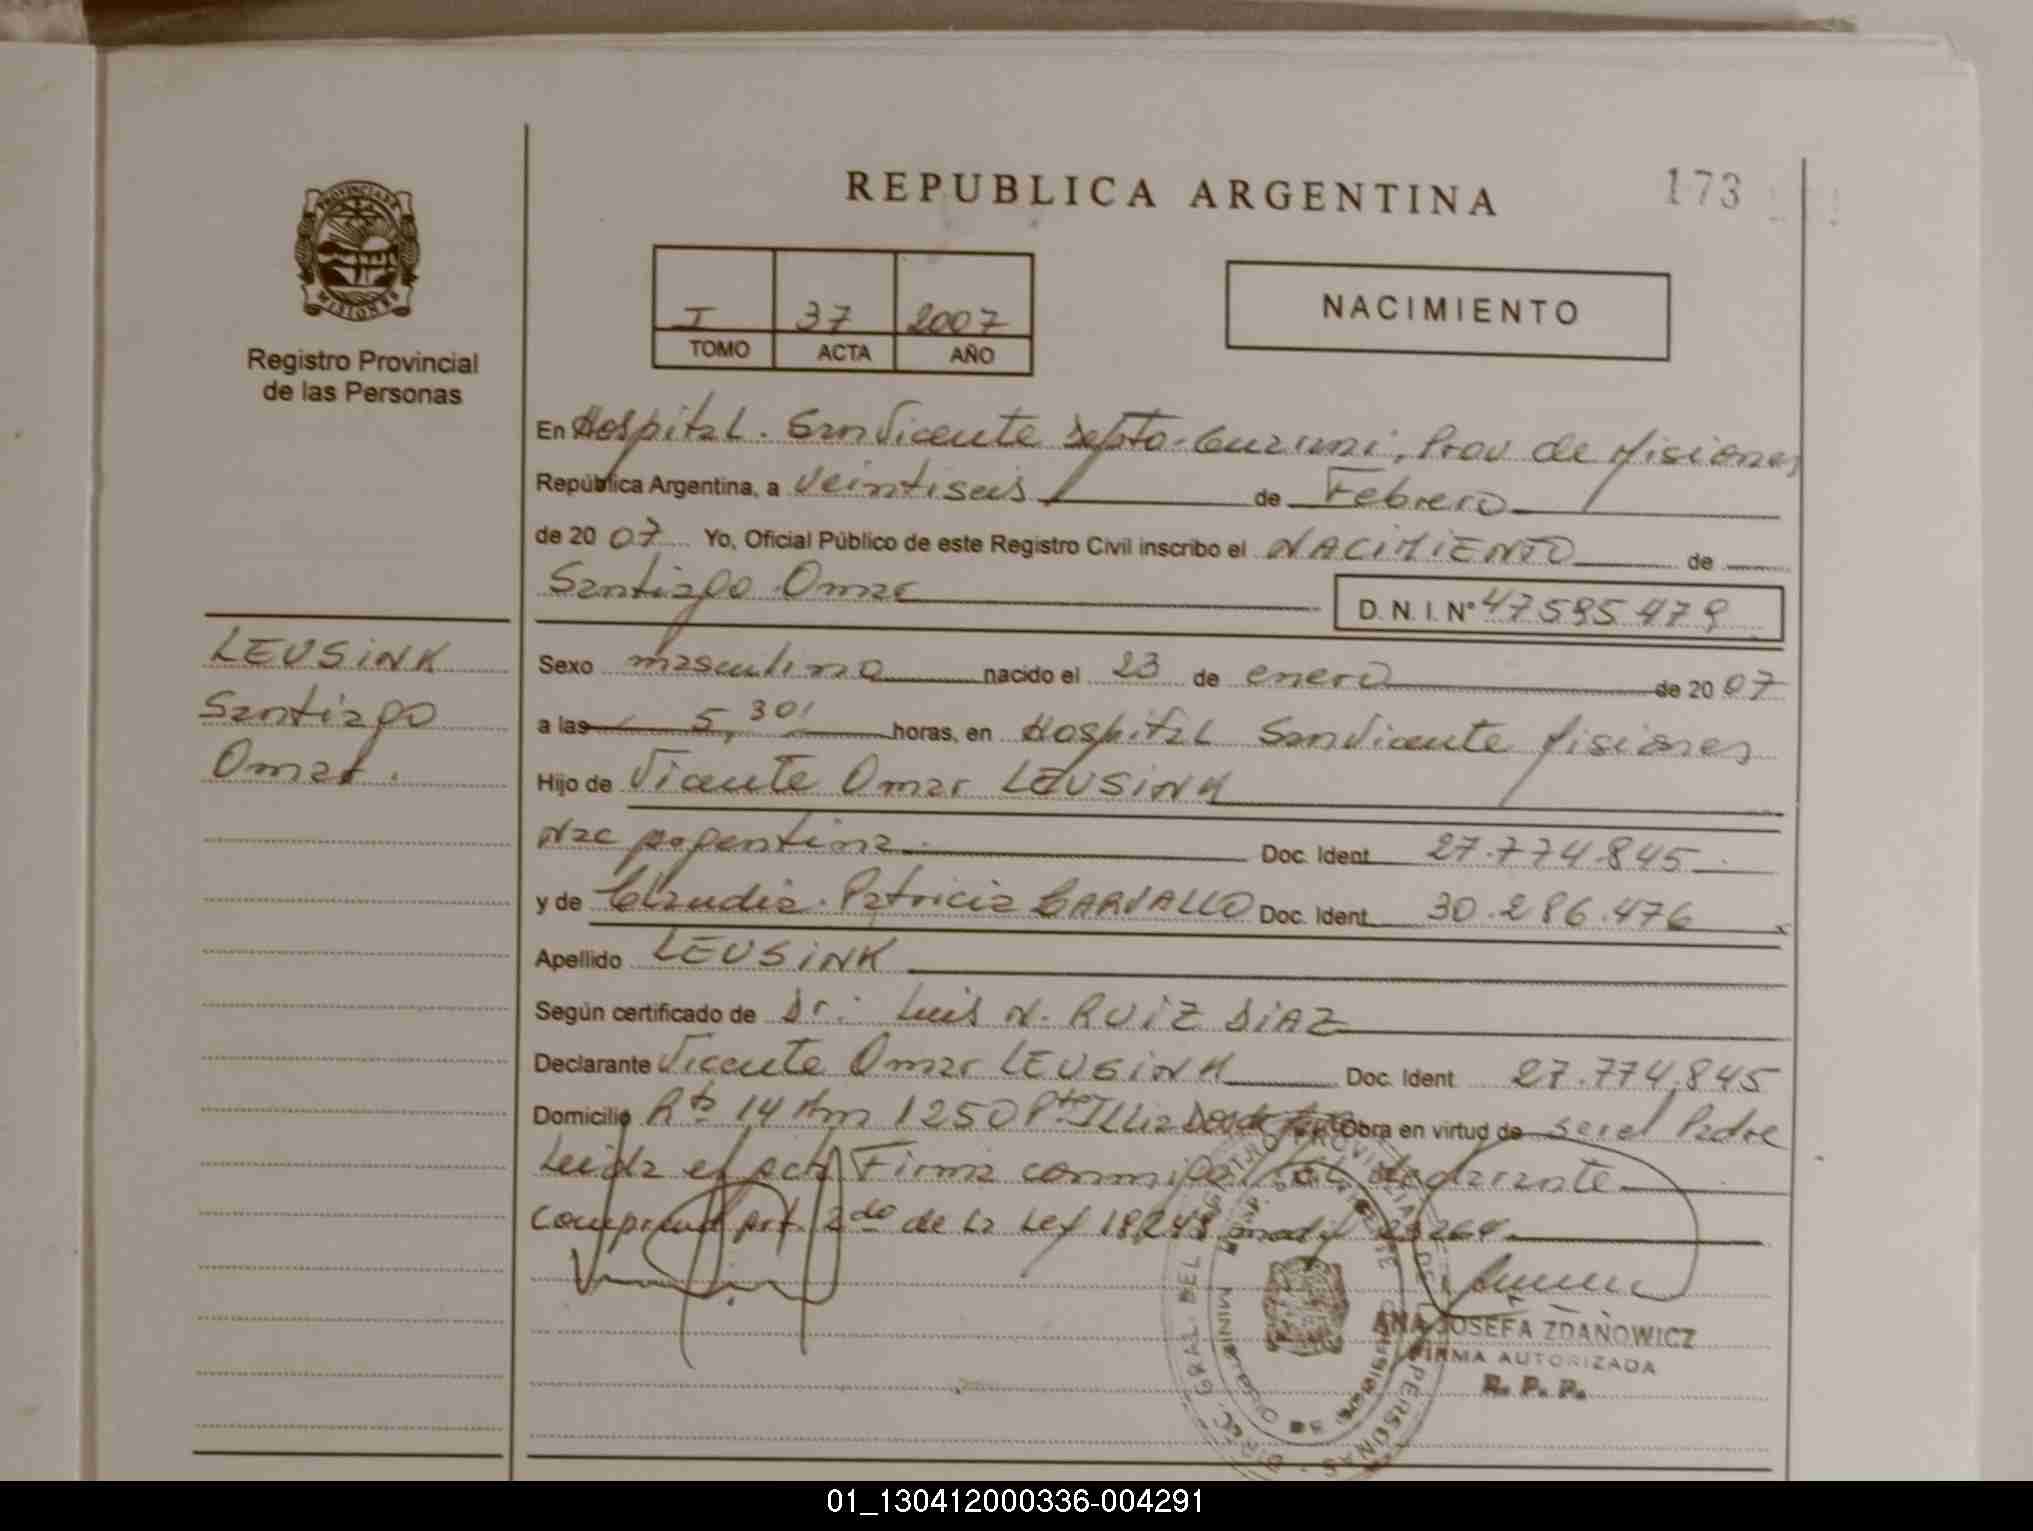 REPUBLICA ARGENTINA
173
PROVINCIA DE
MISIONES
Registro Provincial
de las Personas
I 37 2007
TOMO ACTA AÑO
NACIMIENTO
En Hospital. San Vicente Depto- Guarani, Prov de Misiones
República Argentina, a veintiseis de Febrero
de 20 07 Yo, Oficial Público de este Registro Civil inscribo el NACIMIENTO de
Santiago Omar
D. N. I. Nº 47595479
LEUSINK
Santiago
Omar.
Sexo masculino nacido el 23 de enero de 20 07
a las 5,30' horas, en Hospital San Vicente Misiones
Hijo de Vicente Omar LEUSINK
Nac Argentina Doc. Ident 27.774.845
y de Claudia Patricia CARVALLO Doc. Ident. 30.286.476
Apellido LEUSINK
Según certificado de Dr: Luis N. RUIZ DIAZ
Declarante Vicente Omar LEUSINK Doc. Ident 27.774.845
Domicilio Rta 14 Km 1250 Obra en virtud de ser el Padre
Leida el acta Firma conmigo el declarante
Comprend Art. 2do de la Ley 18248 modif
ANA JOSEFA ZDANOWICZ
FIRMA AUTORIZADA
R. P. P.
01_130412000336-004291